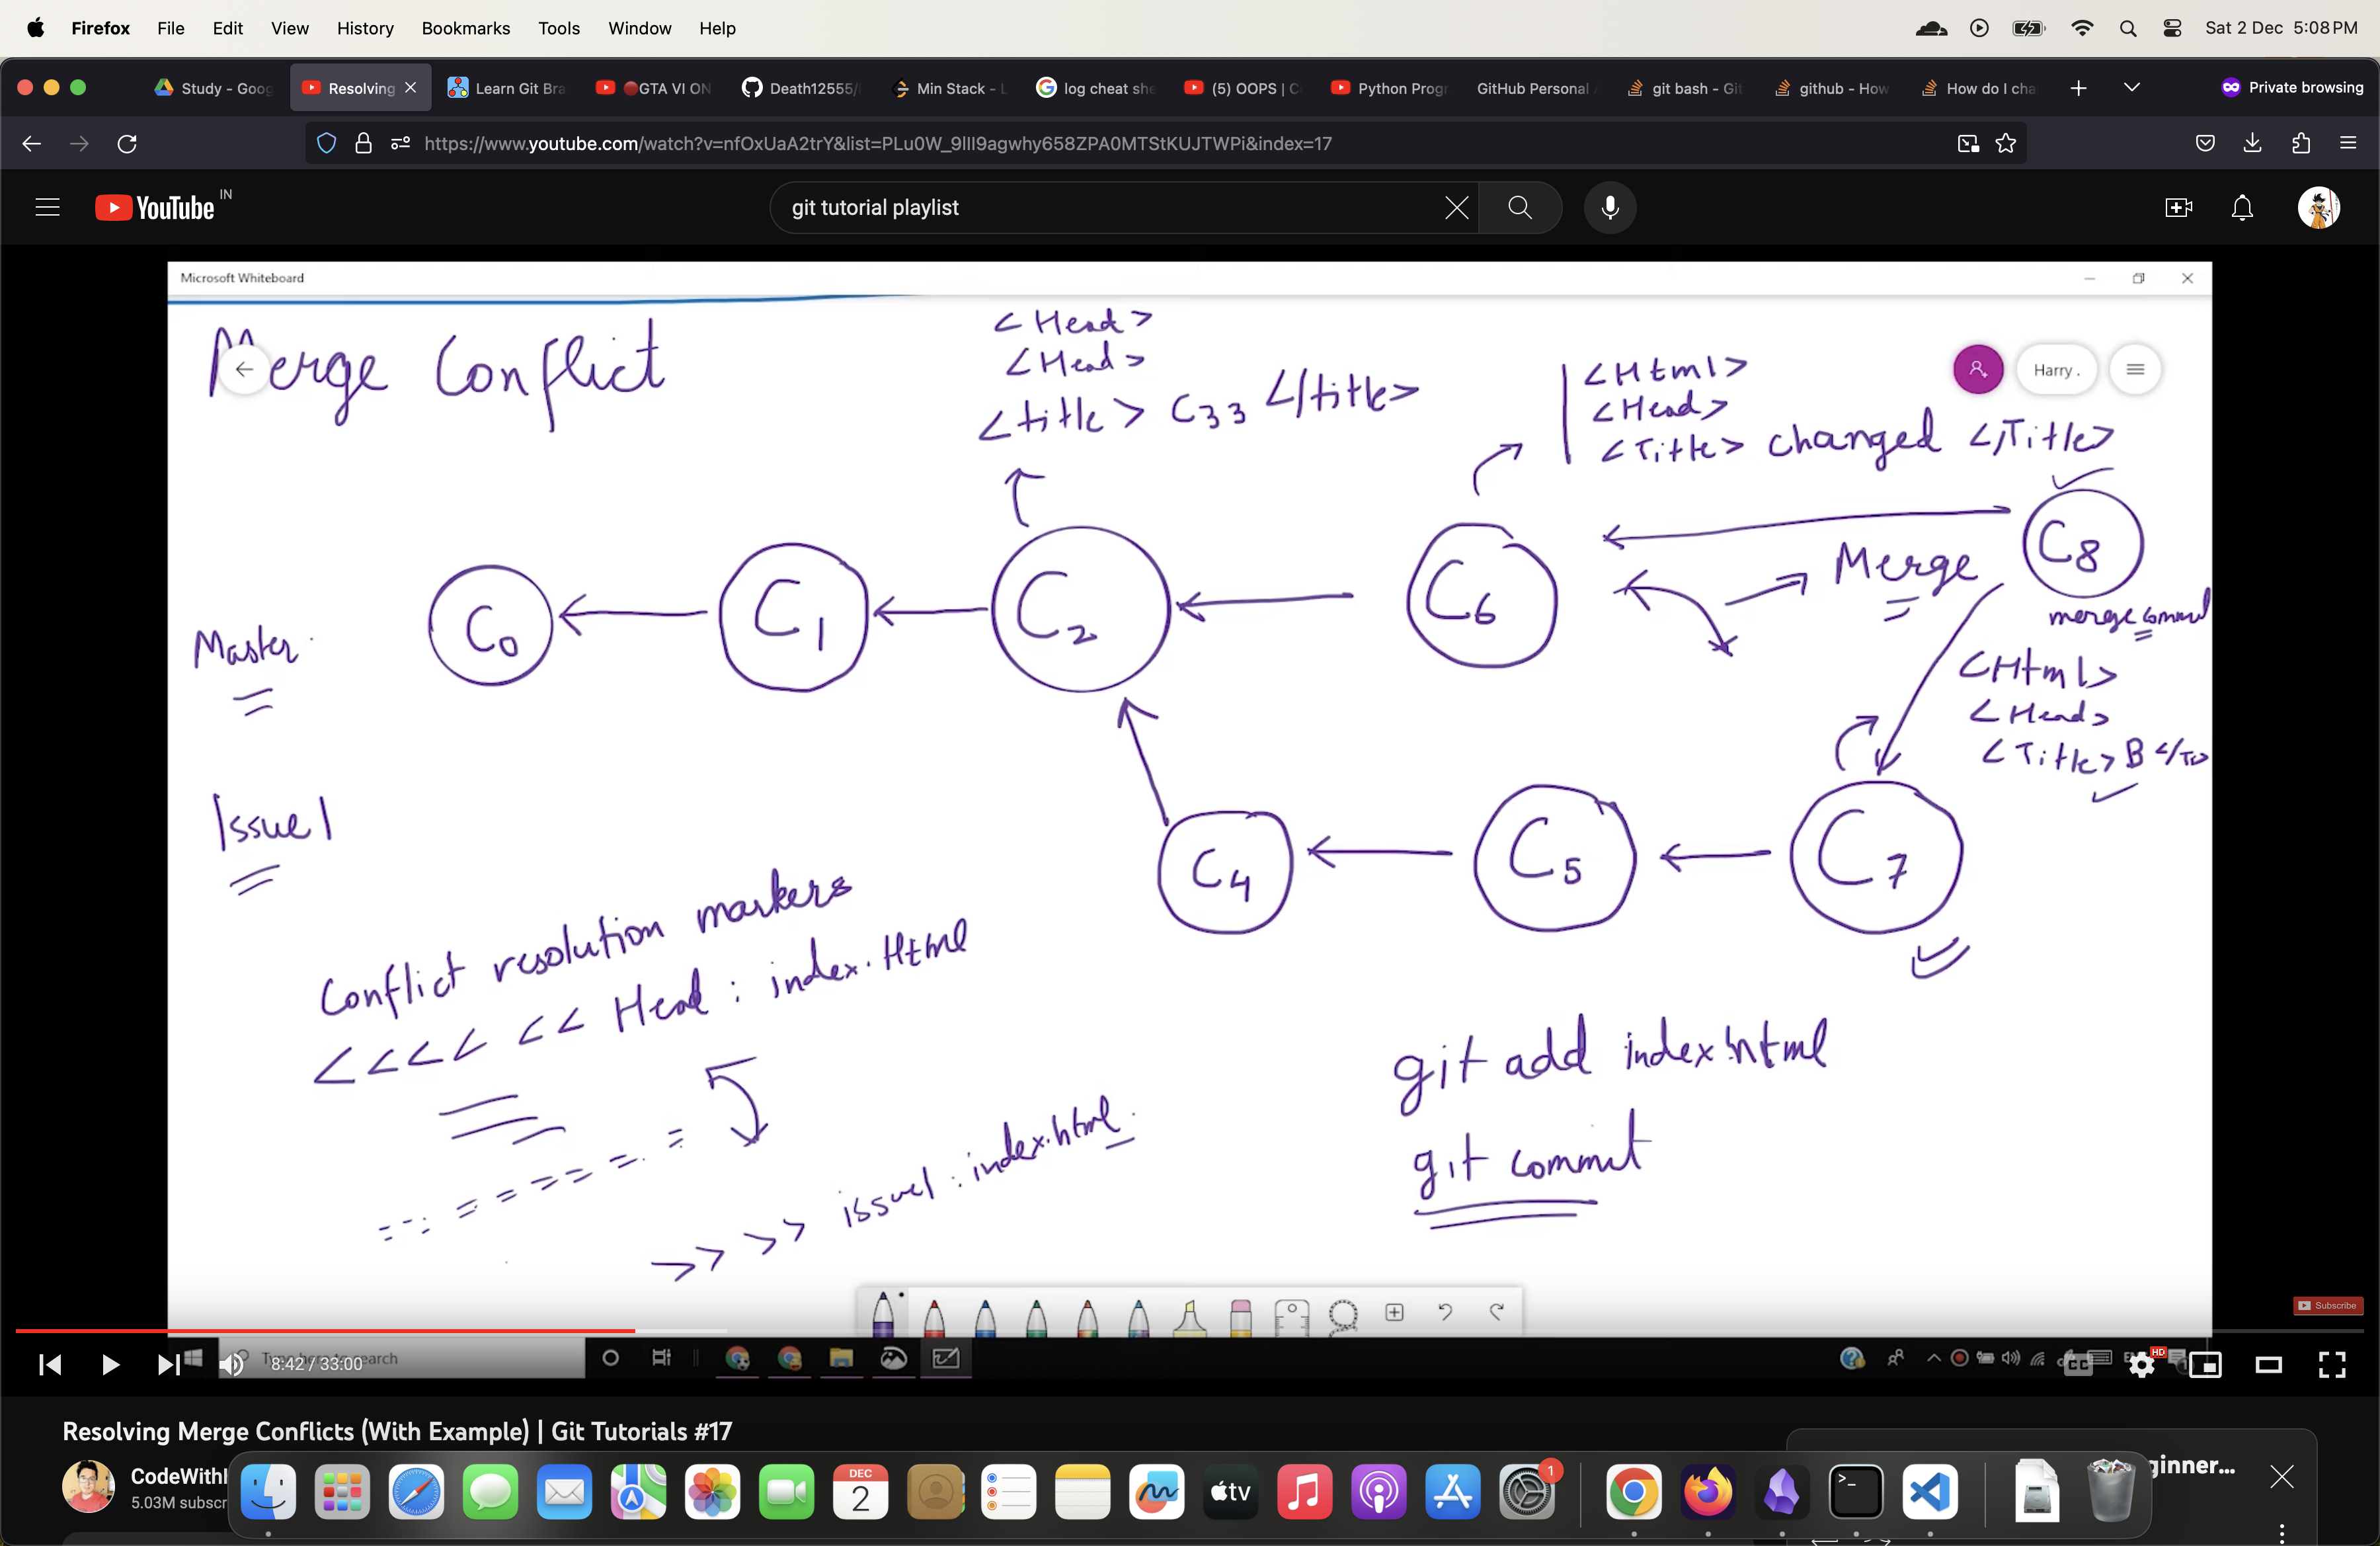 Firefox File Edit View History Bookmarks Tools Window Help Sat 2 Dec 5:08 PM
Study - Goog Resolving Learn Git Bra GTA VI ON Death12555/ Min Stack - L log cheat she (5) OOPS | C Python Progr GitHub Personal git bash - Git github - How How do I cha Private browsing
https://www.youtube.com/watch?v=nfOxUaA2trY&list=PLu0W_9lII9agwhy658ZPA0MTStKUJTWPi&index=17
YouTube IN git tutorial playlist
Microsoft Whiteboard
Merge Conflict
<Head>
<Head>
<title> C33 </title>
<Html>
<Head>
<Title> changed </Title>
Harry .
Master
C0 C1 C2 C6 Merge C8
merge commit
<Html>
<Head>
<Title> B </T>
Issue1
C4 C5 C7
Conflict resolution markers
<<<< << Head : index.Html
=======
>>>> issue1 : index.html
git add index.html
git commit
Subscribe
Type here to search
8:42 / 33:00
CC HD
Resolving Merge Conflicts (With Example) | Git Tutorials #17
CodeWithH
5.03M subscr
ginner...
DEC
2
tv
1